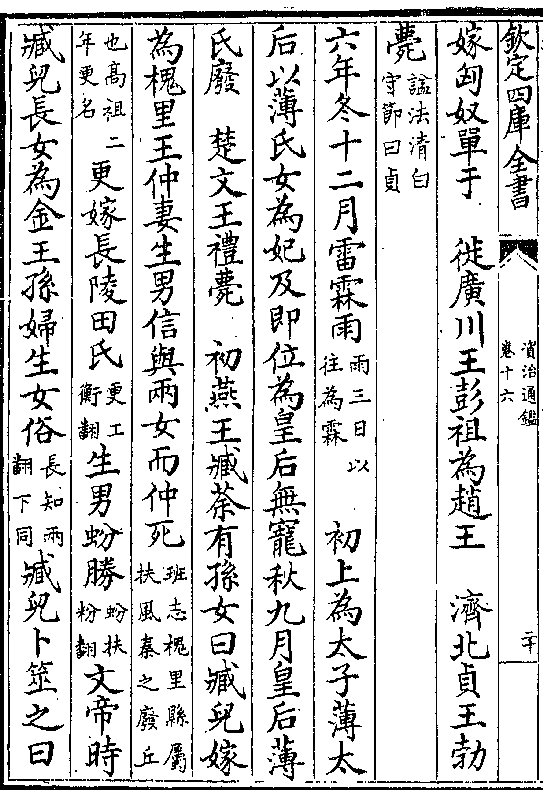 欽定四庫全書 資治通鑑卷十六 二十
嫁匈奴單于　徙廣川王彭祖為趙王　濟北貞王勃
薨諡法清白守節曰貞
六年冬十二月雷霖雨雨三日以往為霖　初上為太子薄太
后以薄氏女為妃及即位為皇后無寵秋九月皇后薄
氏廢　楚文王禮薨　初燕王臧荼有孫女曰臧兒嫁
為槐里王仲妻生男信與兩女而仲死班志槐里縣屬扶風秦之廢丘
也高祖二年更名更嫁長陵田氏更工衡翻生男蚡勝蚡扶粉翻文帝時
臧兒長女為金王孫婦生女俗長知兩翻下同臧兒卜筮之曰